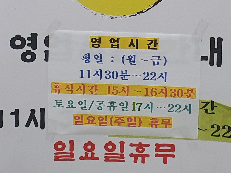 영업
내
영업시간
평일 : (월~금)
11시30분~22시
휴식시간 15시~16시30분
토요일/공휴일 17시~22시
일요일(주일) 휴무
11시
22시
일요일휴무